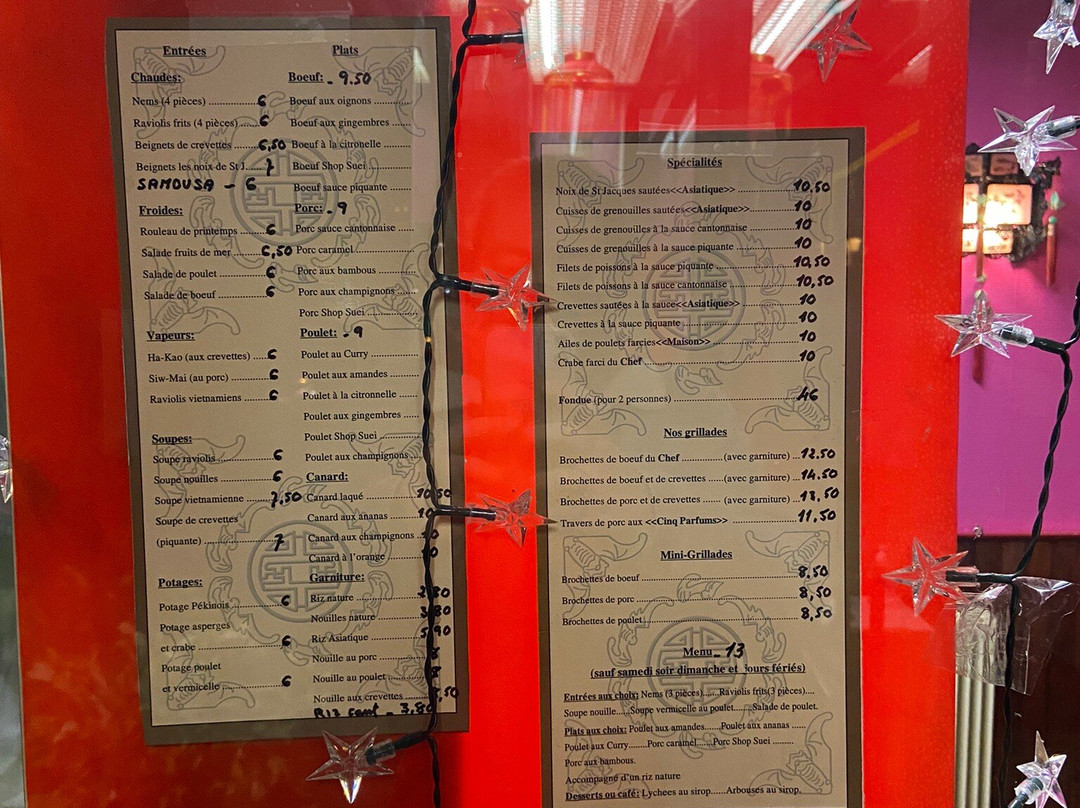 Entrées
Chaudes:
Nems (4 pièces) ................ 6
Raviolis frits (4 pièces) ...... 6
Beignets de crevettes ....... 6,50
Beignets les noix de St J..... 7
SAMOUSA - 6
Froides:
Rouleau de printemps ......... 6
Salade fruits de mer ......... 6,50
Salade de poulet .............. 6
Salade de boeuf ............... 6
Vapeurs:
Ha-Kao (aux crevettes) .... 6
Siw-Mai (au porc) ............. 6
Raviolis vietnamiens ......... 6
Soupes:
Soupe raviolis ................. 6
Soupe nouilles ................. 6
Soupe vietnamienne ........ 7,50
Soupe de crevettes
(piquante) ..................... 7
Potages:
Potage Pékinois ............... 6
Potage asperges
et crabe ....................... 6
Potage poulet
et vermicelle .................. 6
Plats
Boeuf: - 9.50
Boeuf aux oignons ............
Boeuf aux gingembres .......
Boeuf à la citronelle .........
Boeuf Shop Suei ..............
Boeuf sauce piquante ........
Porc: - 9
Porc sauce cantonnaise .....
Porc caramel ..................
Porc aux bambous ............
Porc aux champignons ......
Porc Shop Suei ................
Poulet: - 9
Poulet au Curry ...............
Poulet aux amandes ..........
Poulet à la citronelle .........
Poulet aux gingembres ......
Poulet Shop Suei ..............
Poulet aux champignons ....
Canard:
Canard laqué .................. 10,50
Canard aux ananas .......... 10
Canard aux champignons .. 10
Canard à l'orange ............ 10
Garniture:
Riz nature .....................
Nouilles nature ............... 3,80
Riz Asiatique .................. 5,90
Nouille au porc ............... 8
Nouille au poulet ............. 8
Nouille aux crevettes ........
Riz cant - 3,80
Spécialités
Noix de St Jacques sautées<<Asiatique>> ............... 10,50
Cuisses de grenouilles sautées<<Asiatique>>............ 10
Cuisses de grenouilles à la sauce cantonnaise ............ 10
Cuisses de grenouilles à la sauce piquante ............... 10
Filets de poissons à la sauce piquante ..................... 10,50
Filets de poissons à la sauce cantonnaise ................. 10,50
Crevettes sautées à la sauce<<Asiatique>> ............... 10
Crevettes à la sauce piquante ............................... 10
Ailes de poulets farcies<<Maison>> ........................ 10
Crabe farci du Chef ............................................ 10
Fondue (pour 2 personnes) ................................... 46
Nos grillades
Brochettes de boeuf du Chef ............(avec garniture) ... 12.50
Brochettes de boeuf et de crevettes ......(avec garniture) ... 14.50
Brochettes de porc et de crevettes ......(avec garniture) ... 13,50
Travers de porc aux <<Cinq Parfums>> ..................... 11,50
Mini-Grillades
Brochettes de boeuf ............................................ 8,50
Brochettes de porc .............................................. 8,50
Brochettes de poulet ........................................... 8,50
Menu - 13
(sauf samedi soir dimanche et jours fériés)
Entrées aux choix: Nems (3 pièces)......Raviolis frits(3 pièces)....
Soupe nouille.....Soupe vermicelle au poulet.....Salade de poulet.
Plats aux choix: Poulet aux amandes......Poulet aux ananas ......
Poulet au Curry.......Porc caramel......Porc Shop Suei .........
Porc aux bambous.
Accompagné d'un riz nature
Desserts ou café: Lychees au sirop......Arbouses au sirop.